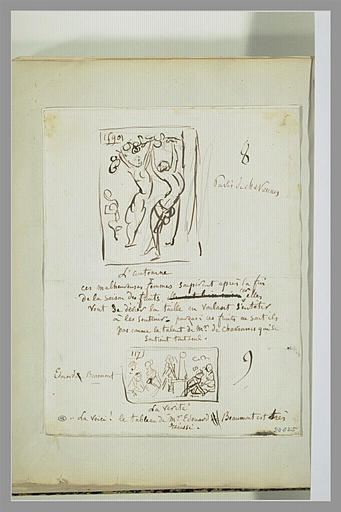 1590
8
Puvis de chavannes
L'automne
ces malheureuses femmes soupirent après la fin
de la saison des fruits car elles
vont se dévier la taille en voulant s'entêter
à les soutenir. pourquoi ces fruits ne sont ils
pas comme le talent de Mr. de chavannes qui se
soutient tout seul.
117
9
Edouard Beaumont
La verité
- La voici! le tableau de Mr Edouard Beaumont est très
réussi.